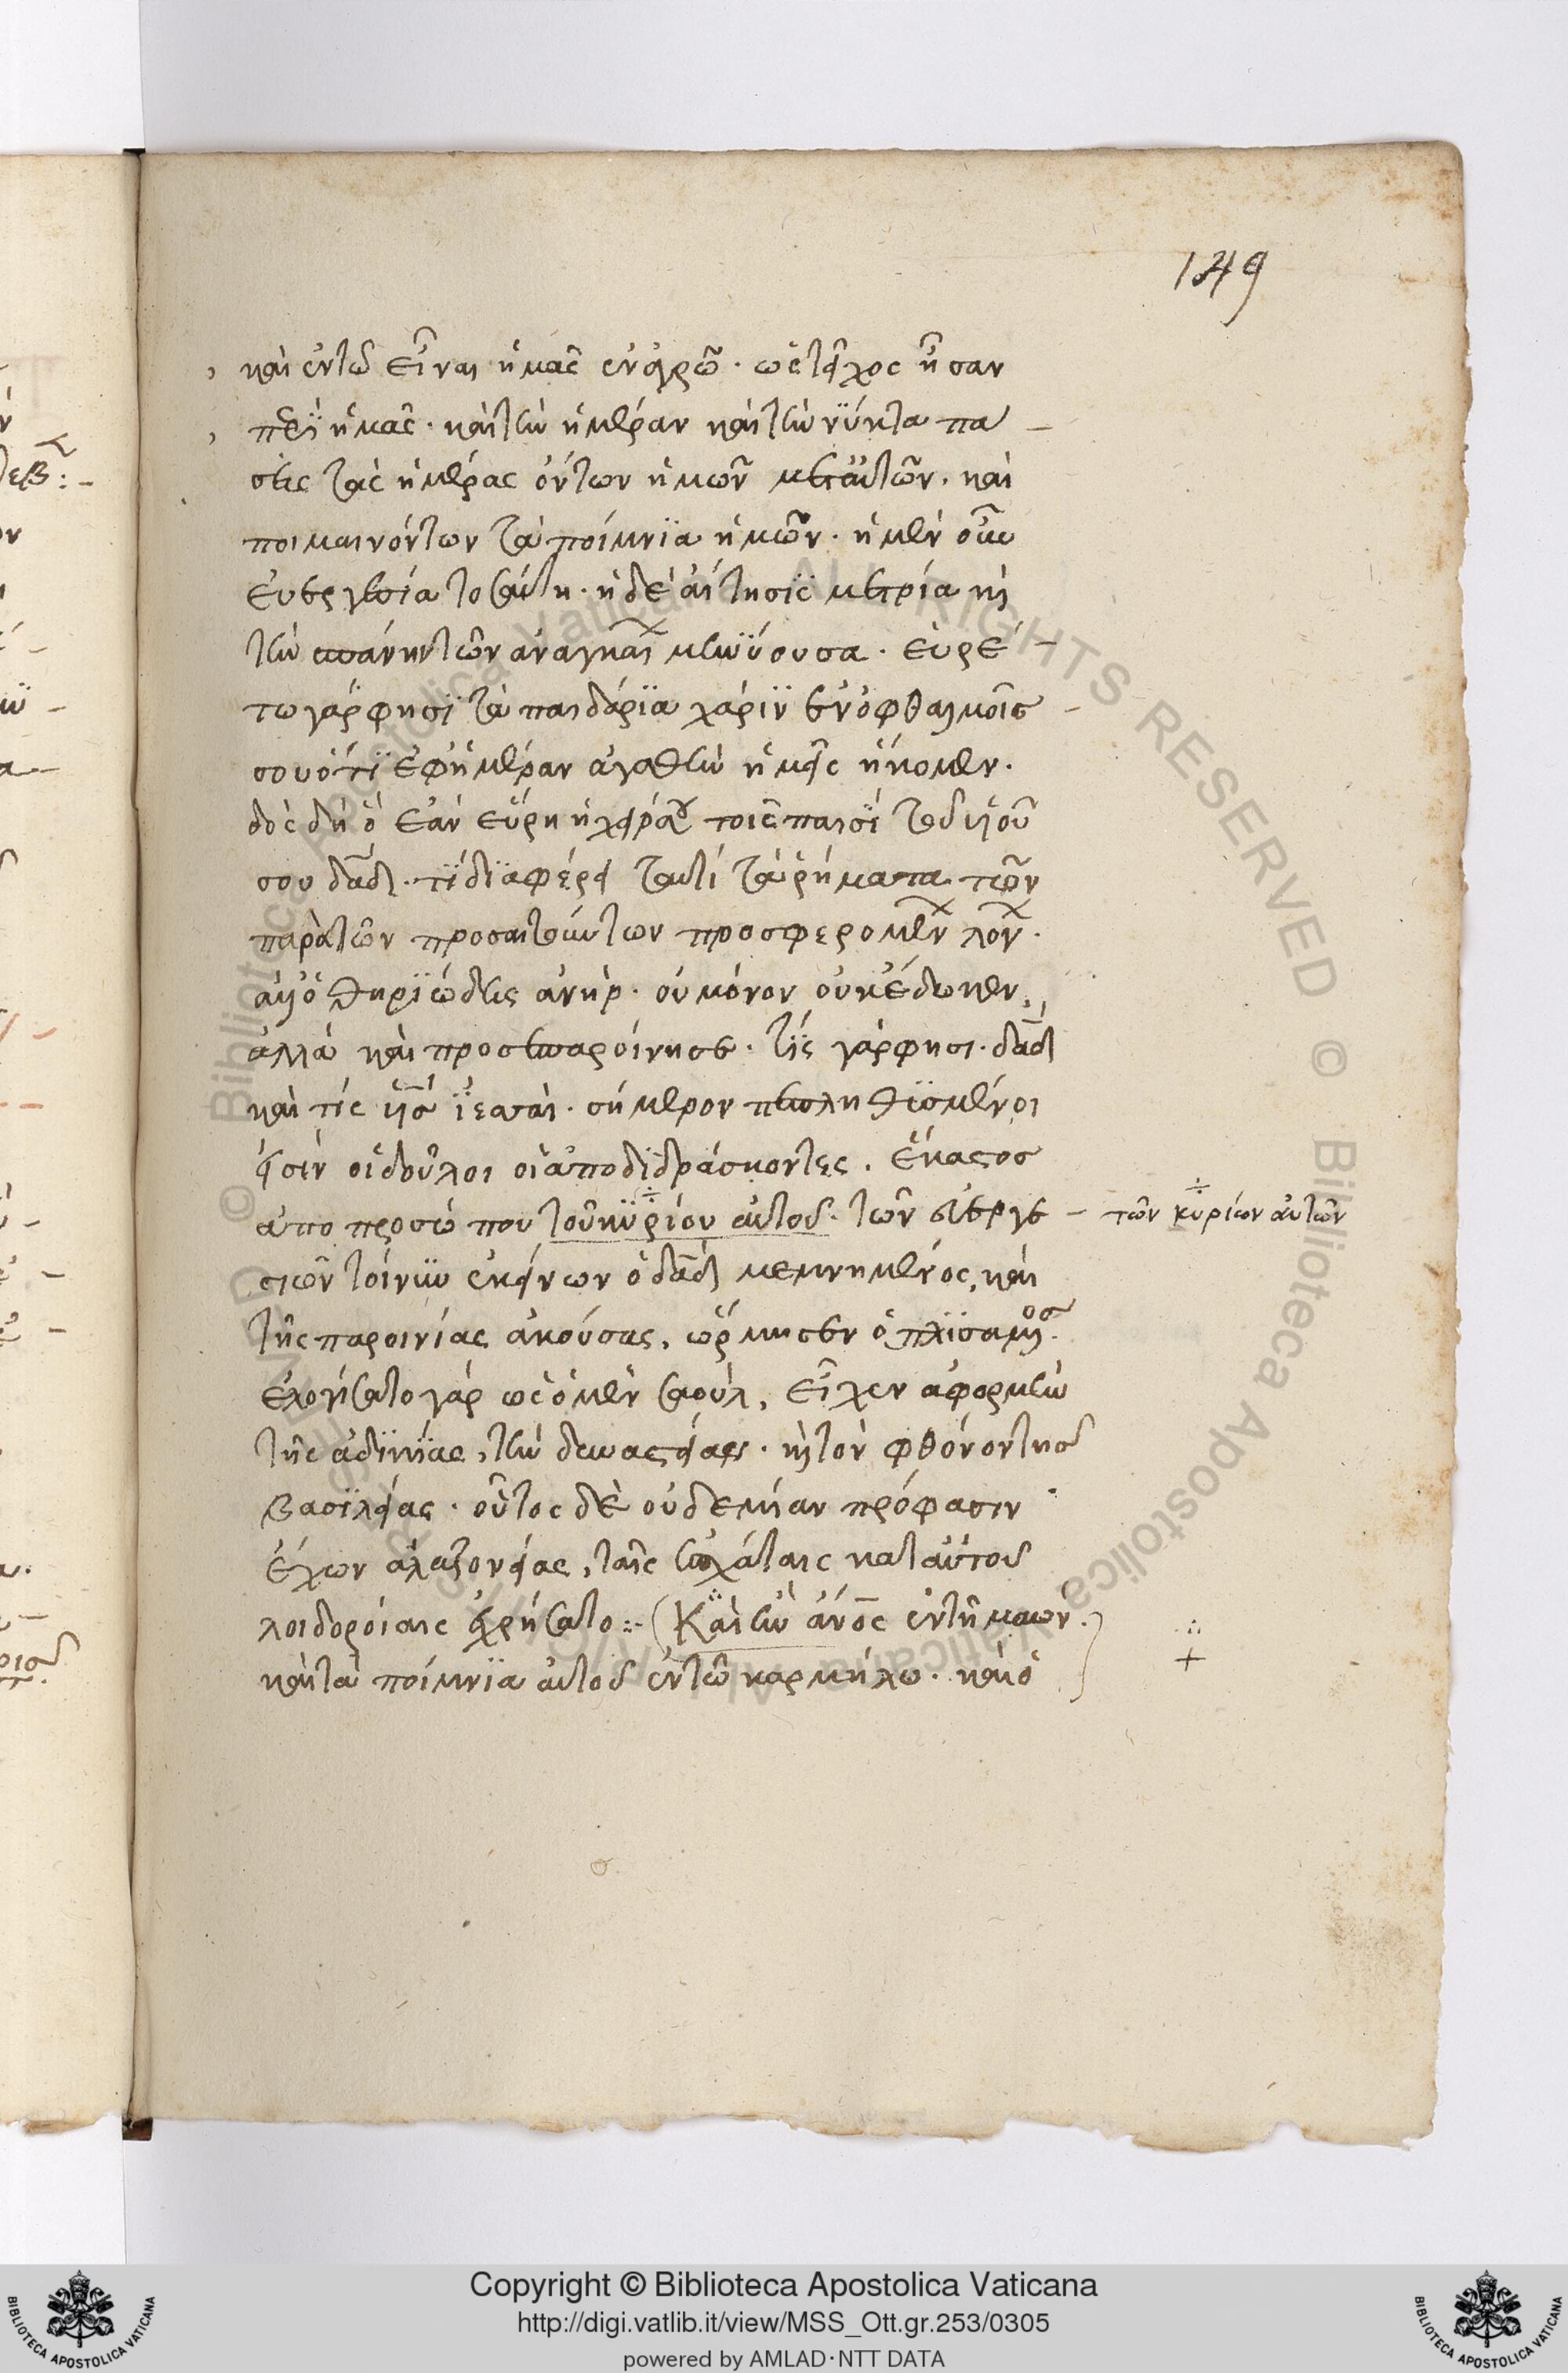 149
καὶ ἐν τῷ εἶναι ἡμᾶς ἐν ἀγρῶ· ὡς τεῖχος ἦσαν
περὶ ἡμᾶς· καὶ τὴν ἡμέραν καὶ τὴν νύκτα πα –
σας τὰς ἡμέρας ὄντων ἡμῶν μετ αὐτῶν· καὶ
ποιμαινόντων τὰ ποίμνϊα ἡμῶν· ἡ μὲν οὖν
ἐυεργεσία τοσάυτη· ἡ δὲ ἀίτησϊς μετρία κὶ
τὴν τῶν ἀναγκαί μηνύουσα· ἑυρέ –
τω γάρ φησϊ τὰ παιδάρϊα χάρϊν ἐν ὀφθαλμοῖς –
σου ὅτϊ ἐφ ἡμέραν ἀγαθὴν ἡμεῖς ἥκομεν·
δὸς δὴ ὃ ἐὰν εὕρη ἡ χείρ σου τοῖς παισϊ τῶ υἱοῦ
σου δᾱδ· τί δϊαφέρει ταυτὶ τὰ ῥήματα τῶν
παρὰ τῶν προσαιτούντων προσφερομέν λόγ·
ἀλλ ὁ θηρϊώδης ἀνὴρ· οὐ μόνον οὐκ ἔδωκεν,
ἀλλὰ καὶ προσεπαροίνησε· τίς γάρ φησι· δᾱδ
καὶ τίς υἱὸσ ϊεσσαί· σήμερον πεπληθϋσμένοι
εἰσὶν οἱ δοῦλοι οἱ ἀποδϊδράσκοντες, ἕκαστοσ
ἀπο προσώπου τοῦ κϋρίου αὐτοῦ· τῶν ἐυεργε – τῶν κυρίων αὐτῶν
σιῶν τοίνυν ἐκείνων ὁ δᾱδ μεμνημένος, καὶ
τῆς παροινίας ἀκούσας, ὥρμησεν ὁπλϊσάμενοσ·
ἐλογίσατο γάρ ὡς ὁ μὲν σαοὺλ, εἶχεν ἀφορμὴν
τῆς ἀδϊκίας, τὴν δυναστείαν· κὶ τὸν φθόνον τῆσ
βασϊλείας· οὗτος δὲ οὐδεμίαν πρόφασιν
ἔχων ἀλαζονείας, ταῖς ἐσχάταις κατ αὐτοῦ
λοιδορίαις ἐχρήσατο :- (Καὶ ἦν ἄνο̄ς ἐν τῆ μαών·
καὶ τὰ ποίμνϊα αὐτοῦ ἐν τῶ καρμήλω· καὶ ὁ
Copyright © Biblioteca Apostolica Vaticana
http://digi.vatlib.it/view/MSS_Ott.gr.253/0305
powered by AMLAD·NTT DATA